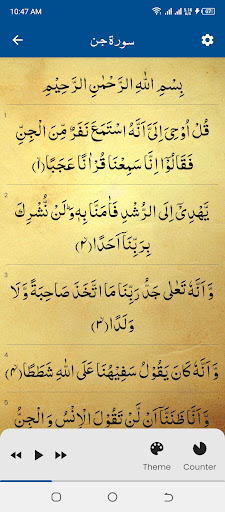 10:47 AM
سورۃ جن
بِسْمِ اللّٰهِ الرَّحْمٰنِ الرَّحِيْمِ
1
قُلْ اُوْحِيَ اِلَيَّ اَنَّهُ اسْتَمَعَ نَفَرٌ مِّنَ الْجِنِّ
فَقَالُوْٓا اِنَّا سَمِعْنَا قُرْاٰنًا عَجَبًا(۱)
2
يَّهْدِيْٓ اِلَى الرُّشْدِ فَاٰمَنَّا بِهٖ وَلَنْ نُّشْرِكَ
بِرَبِّنَآ اَحَدًا(۲)
3
وَّاَنَّهٗ تَعٰلٰى جَدُّ رَبِّنَا مَا اتَّخَذَ صَاحِبَةً وَّلَا
وَلَدًا(۳)
4
وَّاَنَّهٗ كَانَ يَقُوْلُ سَفِيْهُنَا عَلَى اللّٰهِ شَطَطًا(۴)
5
وَّاَنَّا ظَنَنَّآ اَنْ لَّنْ تَقُوْلَ الْاِنْسُ وَالْجِنُّ
Theme Counter